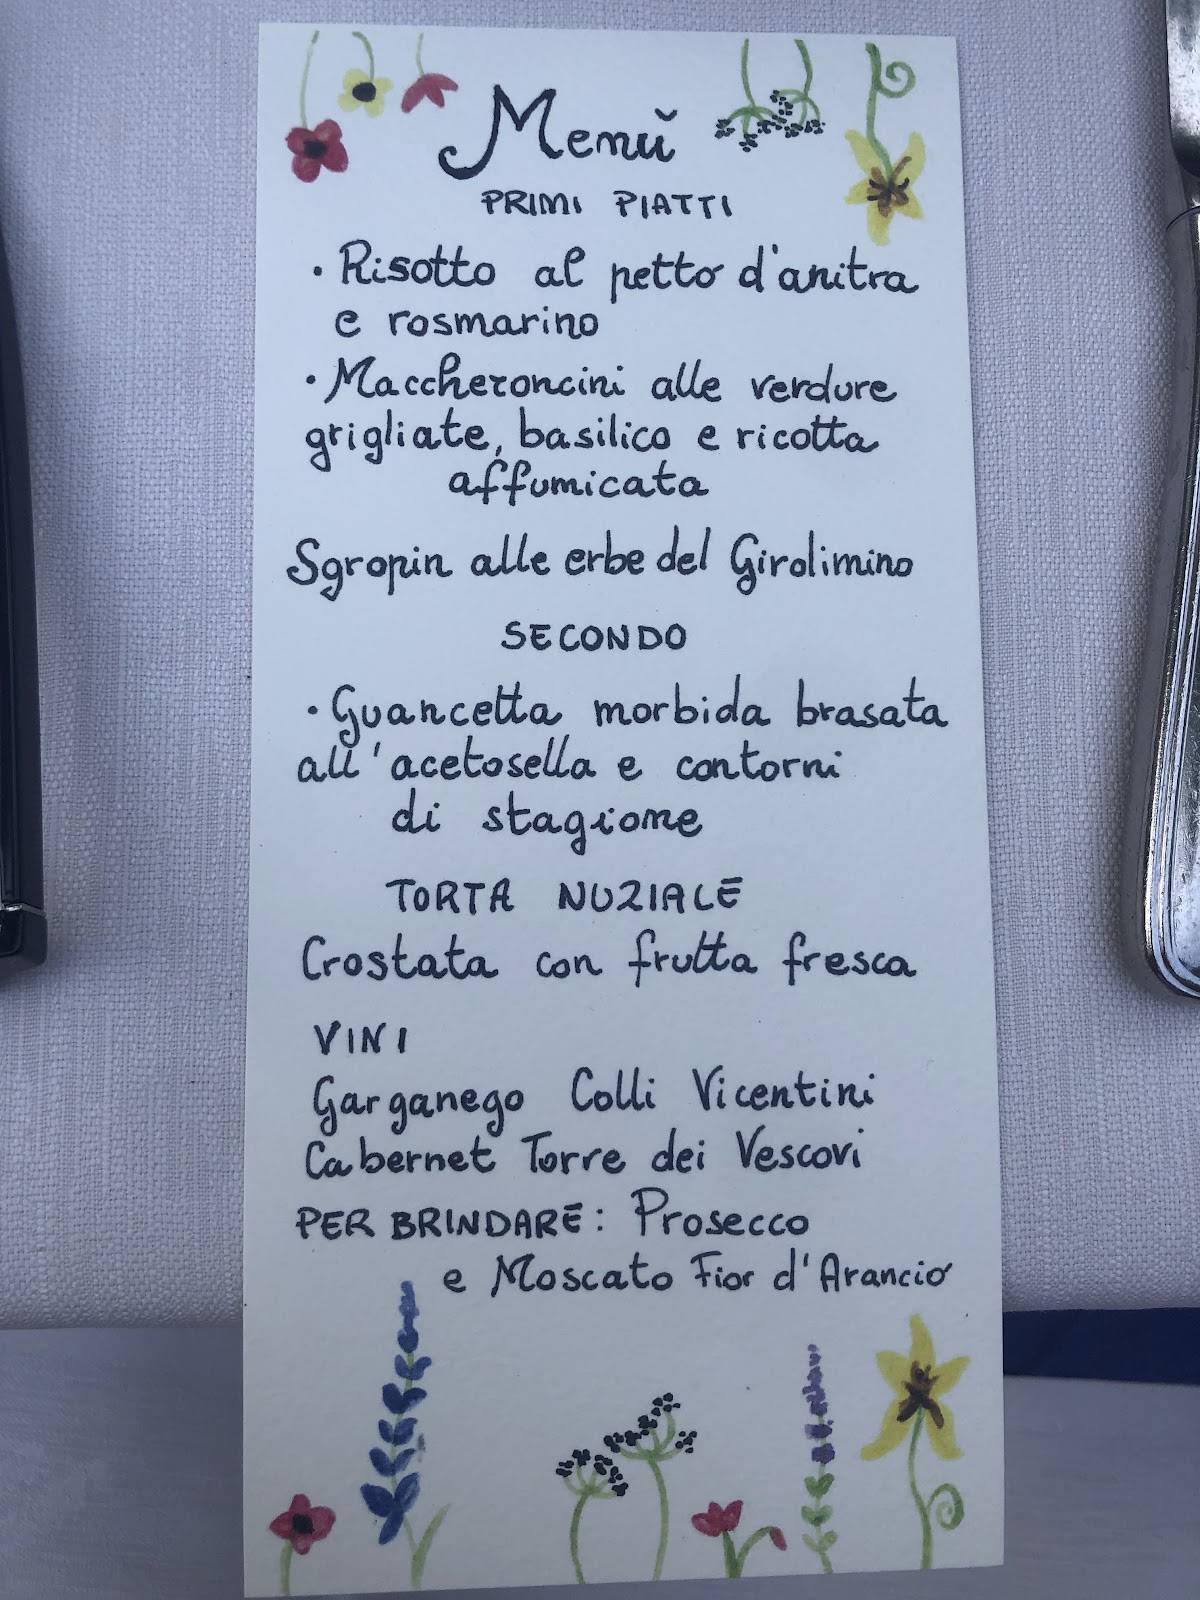 Menù
PRIMI PIATTI
• Risotto al petto d'anitra
e rosmarino
• Maccheroncini alle verdure
grigliate, basilico e ricotta
affumicata
Sgropin alle erbe del Girolimino
SECONDO
• Guancetta morbida brasata
all'acetosella e contorni
di stagione
TORTA NUZIALE
Crostata con frutta fresca
VINI
Garganego Colli Vicentini
Cabernet Torre dei Vescovi
PER BRINDARE: Prosecco
e Moscato Fior d'Arancio